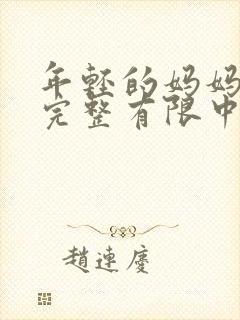 年轻的妈妈
完整有限中
趙連慶